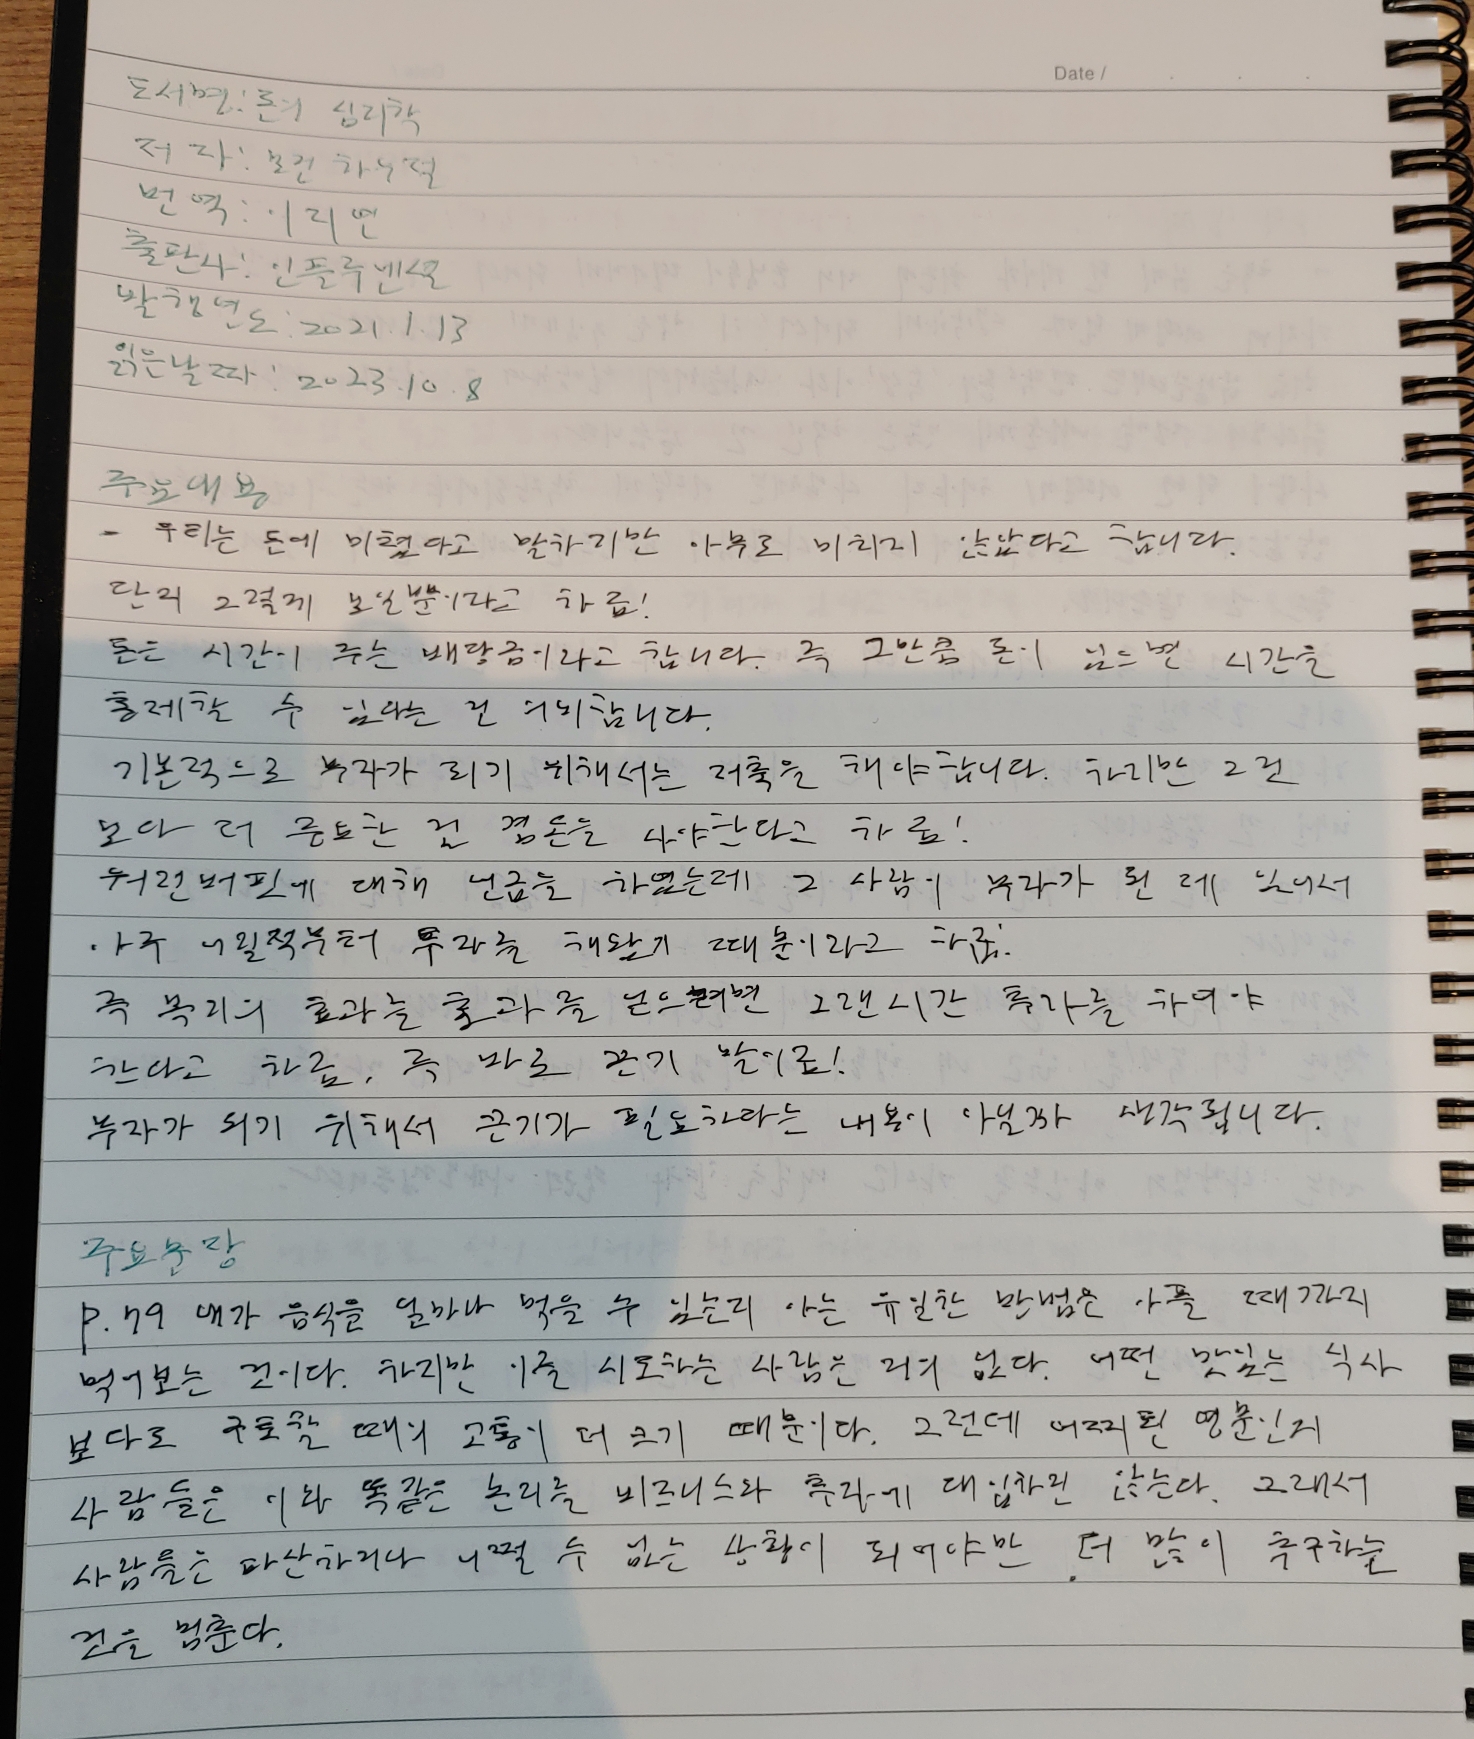 Date / . . .
도서명: 돈의 심리학
저 자: 모건 하우절
번 역: 이지연
출판사: 인플루엔셜
발행년도: 2021.1.13
읽은날짜: 2023.10.8
주요내용
- 우리는 돈에 미쳤다고 말하지만 아무도 미치지 않았다고 합니다.
단지 그렇게 보일뿐이라고 하죠!
돈은 시간이 주는 배당금이라고 합니다. 즉 그만큼 돈이 있으면 시간을
통제할 수 있다는 걸 의미합니다.
기본적으로 부자가 되기 위해서는 저축을 해야합니다. 하지만 그것
보다 더 중요한 건 겸손을 사야한다고 하죠!
워런버핏에 대해 언급을 하였는데 그 사람이 부자가 된 데 있어서
아주 어릴적부터 투자를 해왔기 때문이라고 하죠.
즉 복리의 효과를 효과를 얻으려면 오랜시간 투자를 하여야
한다고 하죠, 즉 바로 끈기 말이죠!
부자가 되기 위해서 끈기가 필요하다는 내용이 아닐까 생각됩니다.
주요문장
P.79 내가 음식을 얼마나 먹을 수 있는지 아는 유일한 방법은 아플 때까지
먹어보는 것이다. 하지만 이를 시도하는 사람은 거의 없다. 어떤 맛있는 식사
보다도 구토할 때의 고통이 더 크기 때문이다. 그런데 어찌된 영문인지
사람들은 이와 똑같은 논리를 비즈니스와 투자에 대입하진 않는다. 그래서
사람들은 파산하거나 어쩔 수 없는 상황이 되어야만 더 많이 추구하는
것을 멈춘다.